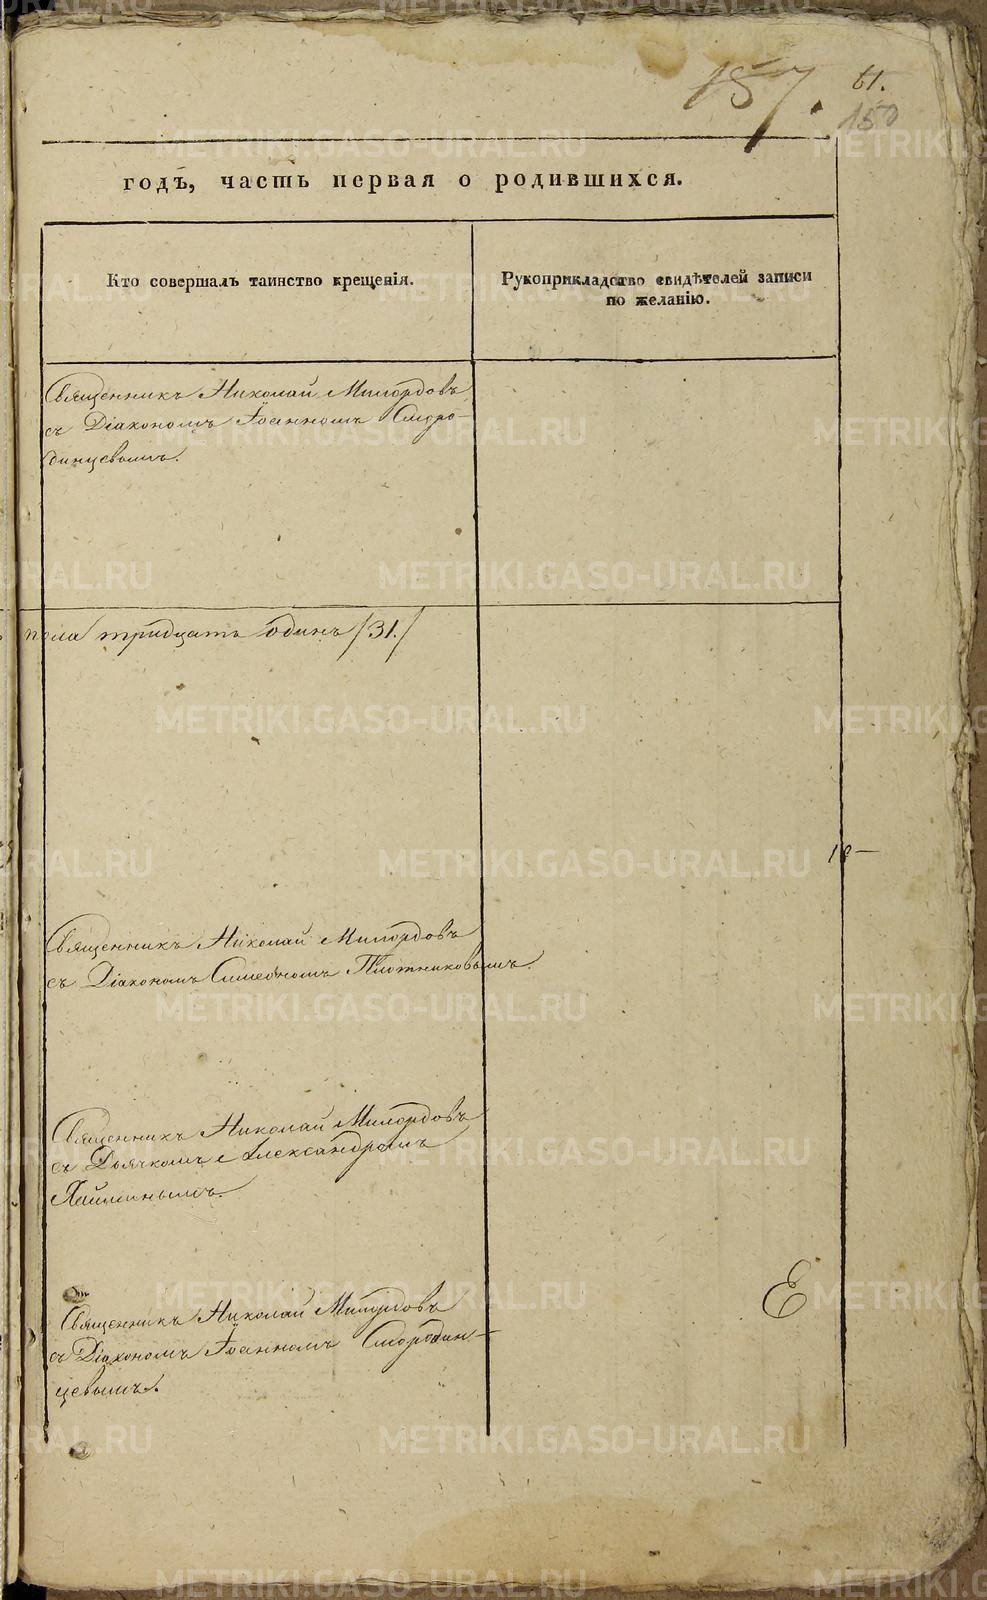 157.
61.
150
годъ, часть первая о родившихся.
Кто совершалъ таинство крещенія.
Рукоприкладство свидѣтелей записи
по желанію.
Священникъ Николай Милордовъ
съ Діакономъ Іоанномъ Сморо-
динцевымъ.
пола тридцать одинъ /31./
Священникъ Николай Милордовъ
съ Діакономъ Симеономъ Плотниковымъ.
Священникъ Николай Милордовъ
съ Дьячкомъ Александромъ
Священникъ Николай Милордовъ
съ Діакономъ Іоанномъ Смородин-
цевымъ.
METRIKI.GASO-URAL.RU